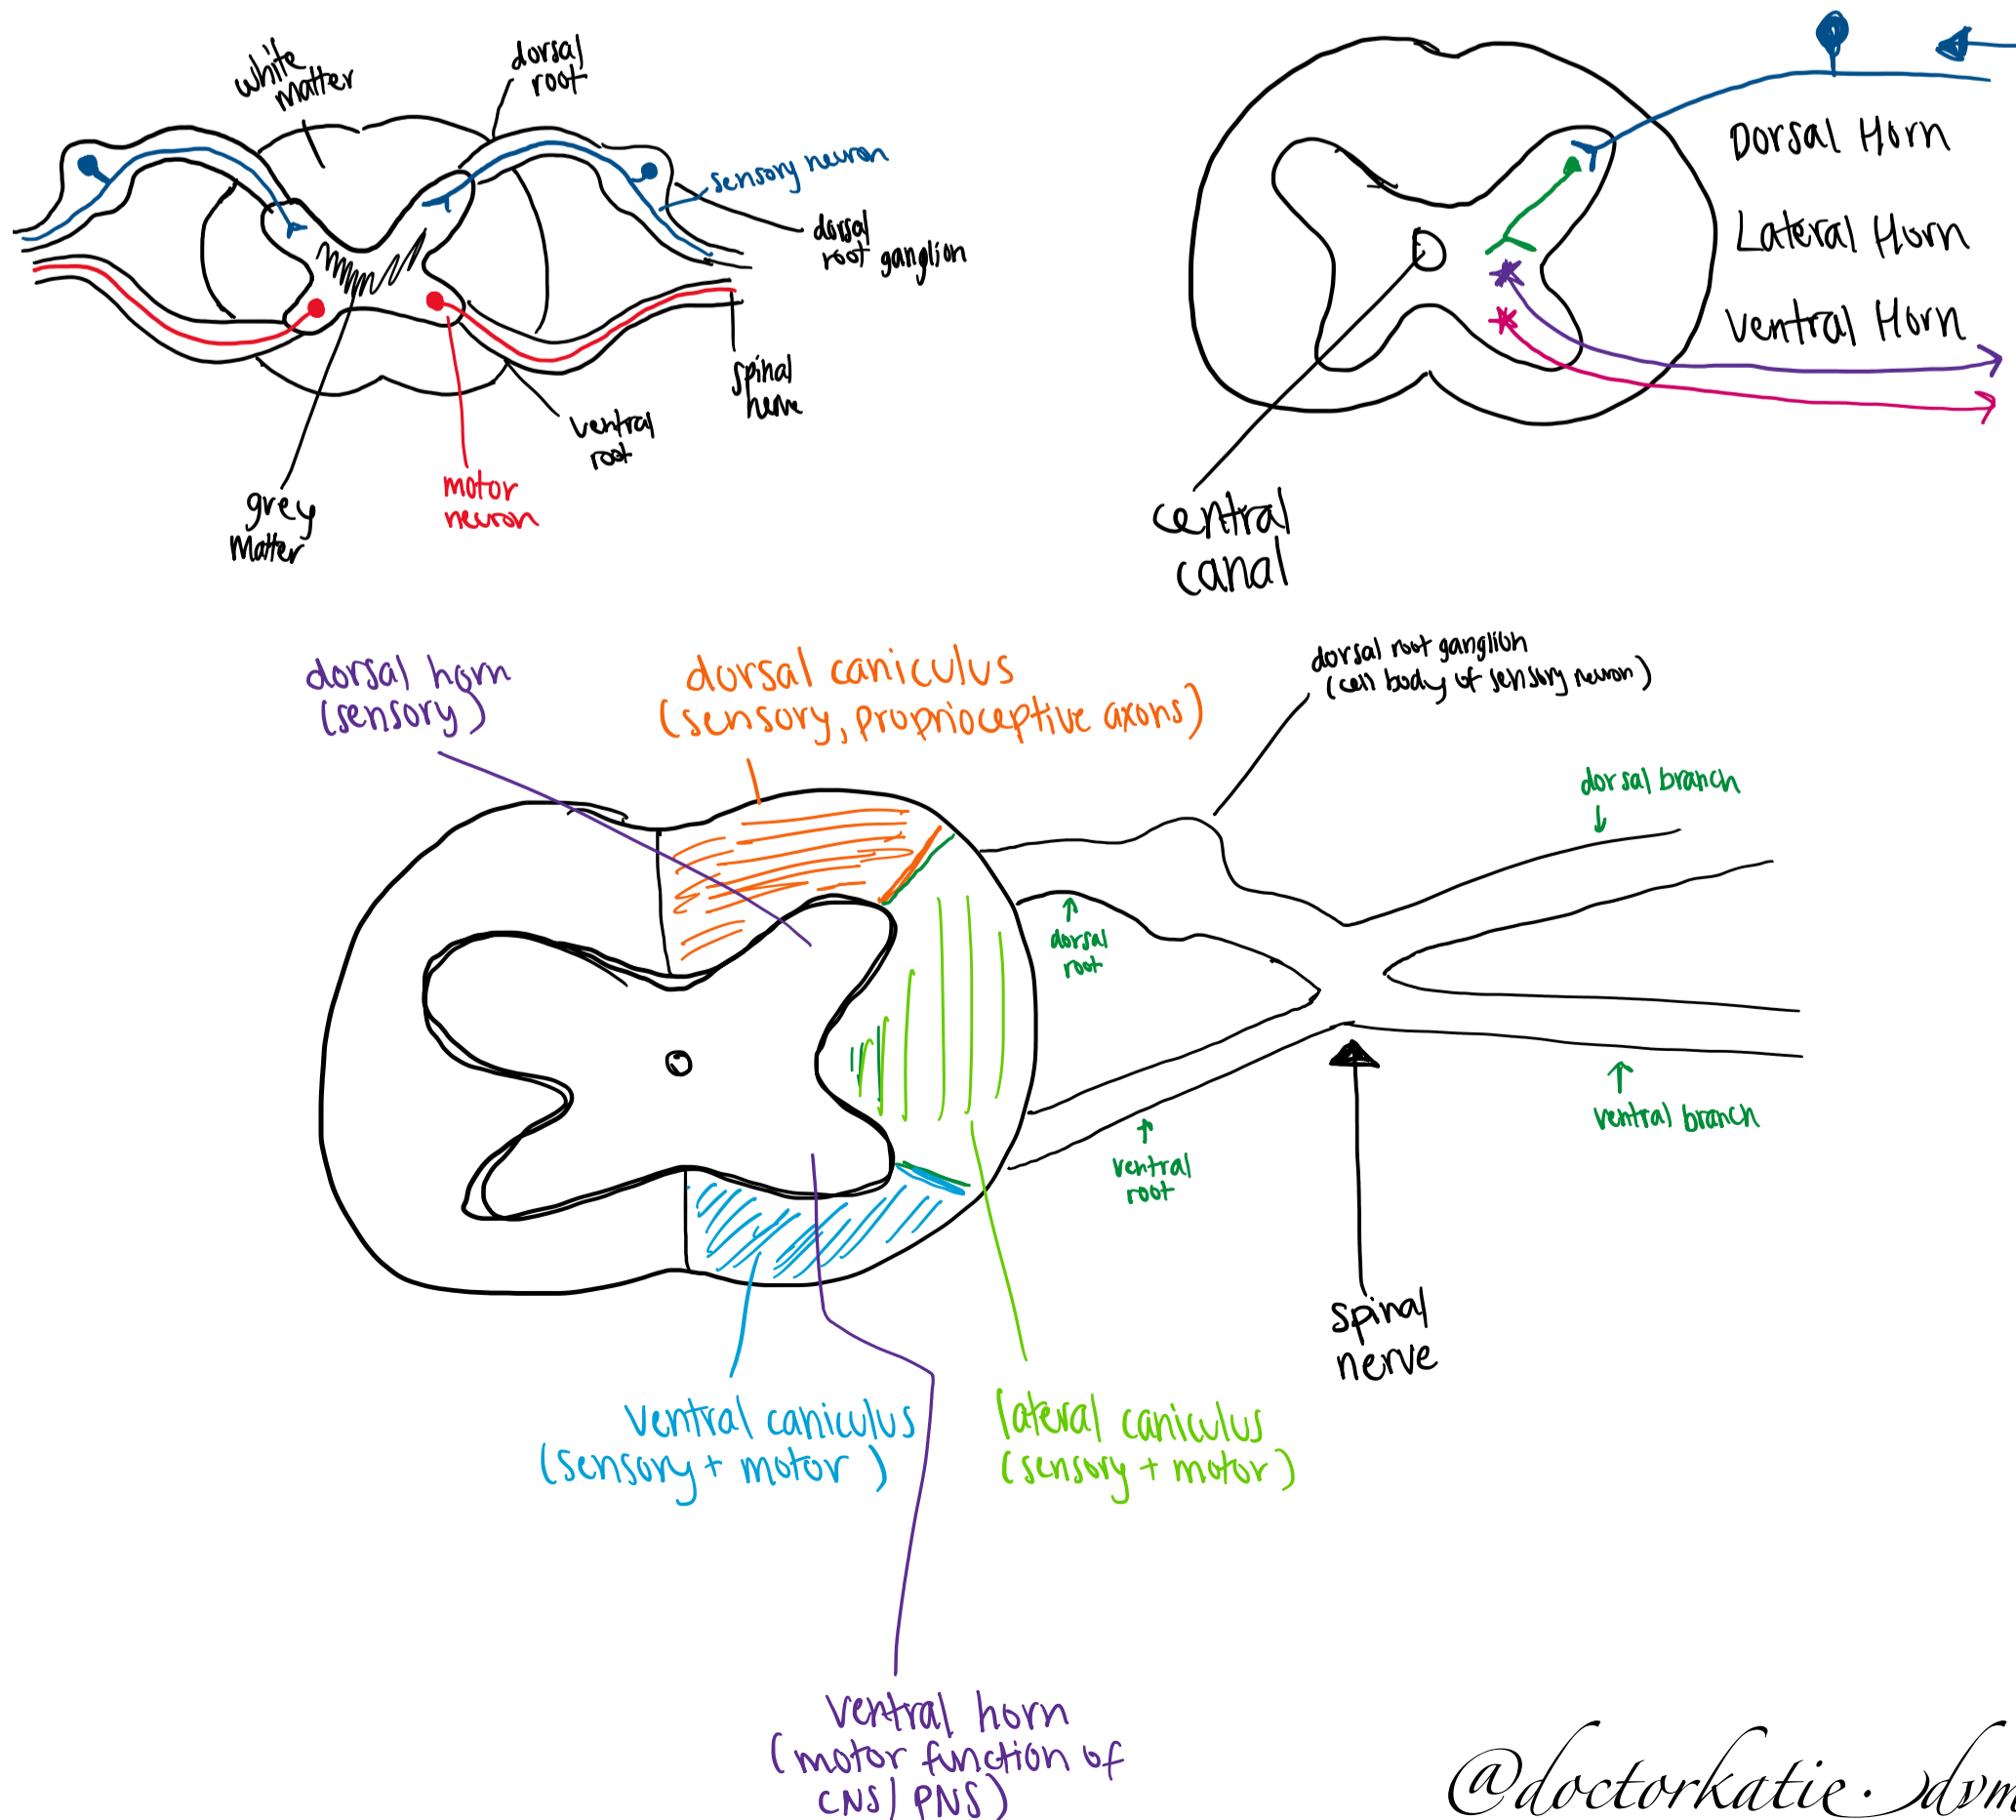 white
matter
dorsal
root
sensory neuron
dorsal
root ganglion
spinal
nerve
ventral
root
motor
neuron
grey
matter
Dorsal Horn
Lateral Horn
Ventral Horn
central
canal
dorsal horn
(sensory)
dorsal caniculus
(sensory, proprioceptive axons)
dorsal root ganglion
(cell body of sensory neuron)
dorsal branch
dorsal
root
ventral branch
ventral
root
spinal
nerve
ventral caniculus
(sensory + motor)
lateral caniculus
(sensory + motor)
ventral horn
(motor function of
CNS/PNS)
@doctorkatie.dvm